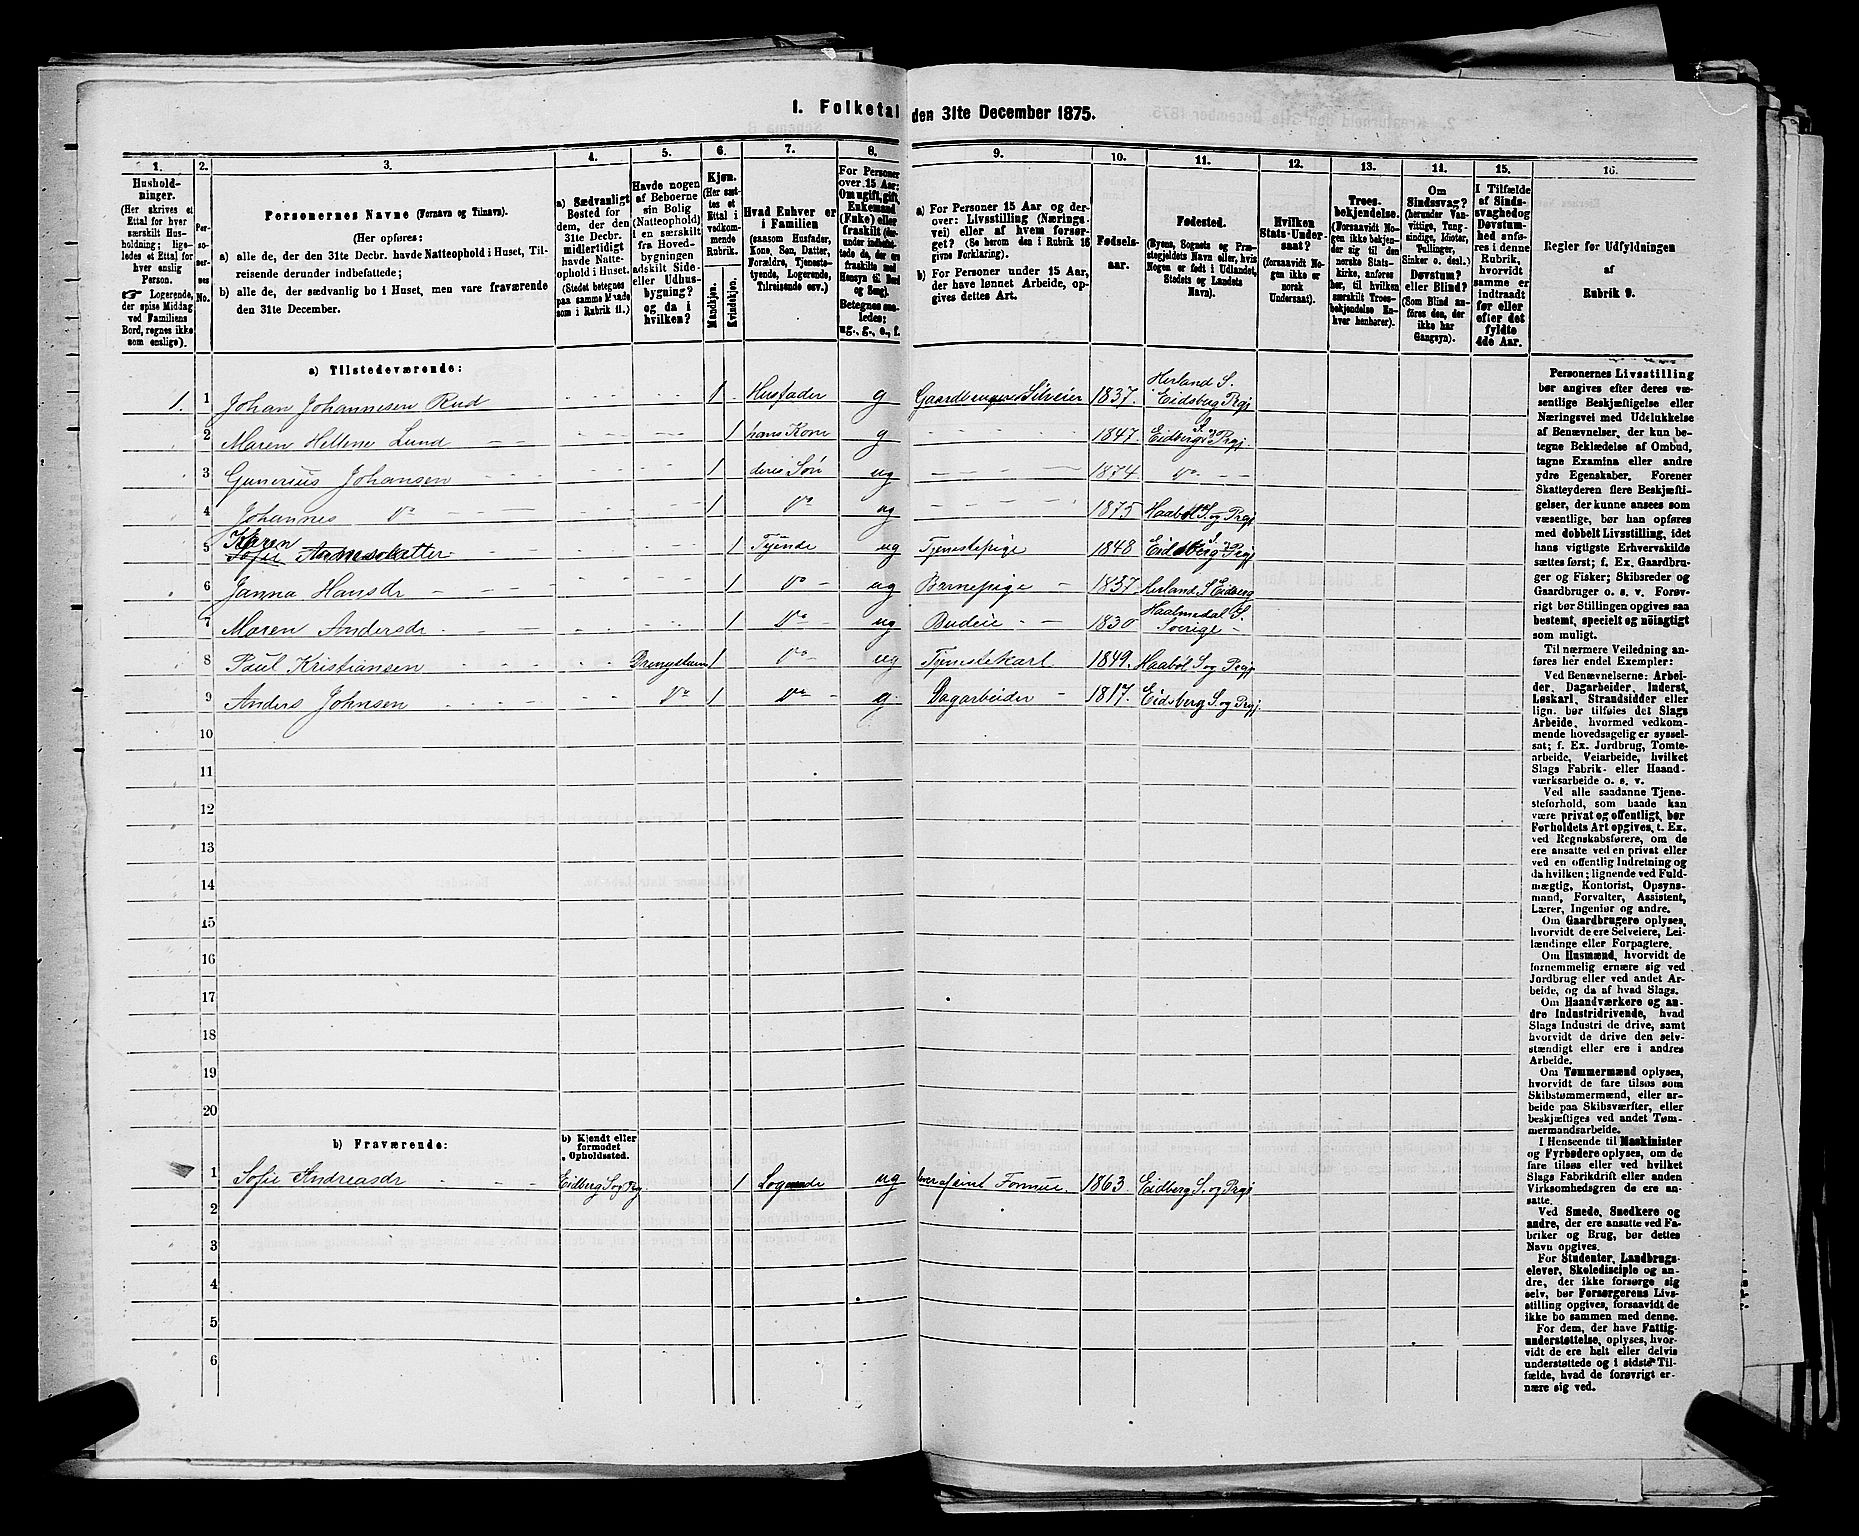 1. Folketal den 31te December 1875.
1. 2. 3. 4. 5. 6. 7. 8. 9. 10. 11. 12. 13. 14. 15. 16.
Hushold-
ninger.
(Her skrives et
Ettal for hver
særskilt Hus-
holdning; lige-
ledes et Ettal for
hver enslig
Person.
☞ Logerende,
der spise Middag
ved Familiens
Bord, regnes ikke
som enslige).
Per-
so-
ner-
nes
No.
Personernes Navne (Fornavn og Tilnavn).
(Her opføres:
a) alle de, der den 31te Decbr. havde Natteophold i Huset, Til-
reisende derunder indbefattede;
b) alle de, der sædvanlig bo i Huset, men vare fraværende
den 31te December.
a) Sædvanligt
Bosted for
dem, der den
31te Decbr.
midlertidigt
havde Natte-
ophold i Huset.
(Stedet betegnes
paa samme Maade
som i Rubrik 11.)
Havde nogen
af Beboerne
sin Bolig
(Natteophold)
i en særskilt
fra Hoved-
bygningen
adskilt Side-
eller Udhus-
bygning?
og da i
hvilken?
Kjøn.
(Her sæt-
tes et
Ettal i
vedkom-
mende
Rubrik.
Mandkjøn.
Kvindekjøn.
Hvad Enhver er
i Familien
(saasom Husfader,
Kone, Søn, Datter,
Forældre, Tjeneste-
tyende, Logerende,
Tilreisende osv.)
For Personer
over 15 Aar:
Om ugift, gift,
Enkemand
(Enke) eller
fraskilt
Betegnes saa-
ledes:
ug., g., e., f.
a) For Personer 15 Aar og der-
over: Livsstilling (Nærings-
vei) eller af hvem forsør-
get? (Se herom den i Rubrik 16
givne Forklaring).
b) For Personer under 15 Aar,
der have lønnet Arbeide, op-
gives dettes Art.
Fødsels-
aar.
Fødested.
(Byens, Sognets og Præ-
stegjeldets Navn eller, hvis
Nogen er født i Udlandet,
Stedets og Landets
Navn).
Hvilken
Stats-Under-
saat?
(forsaavidt No-
gen ikke er
norsk
Undersaat).
Troes-
bekjendelse.
(Forsaavidt No-
gen ikke bekjen-
der sig til den
norske Stats-
kirke, anføres
her, til hvilken
særskilt Troes-
bekjendelse En-
hver henhører).
Om
Sindssvag?
(herunder Van-
vittige, Tung-
sindige, Idioter,
Tullinger,
Sinker o. desl.)
Døvstum?
eller Blind?
(Som Blind an-
føres den, der
ikke har
Gangsyn).
I Tilfælde
af Sinds-
svaghed og
Døvstum-
hed anfø-
res i denne
Rubrik,
hvorvidt
samme er
indtraadt
før eller
efter det
fyldte
4de Aar.
Regler for Udfyldningen
af
Rubrik 9.
a) Tilstedeværende:
1. 1 Johan Johannesen Rud 1 Husfader g Gaardbruger Selveier 1837. Herland S. Eidsberg Prgj
2 Maren Hellene Lund 1 hans Kone g 1847. Eidberg S. & Prgj
3 Gunerius Johansen 1 deres Søn ug 1874 do
4 Johannes do 1 do ug 1875 Haabøl S. og Prgj
5 Karen Sofie 1 Tyende ug Tjenestepige 1848 Eidsberg S. & Prgj
6 Janna Hansdr 1 do ug Barnepige 1857 Herland S. Eidberg
7 Maren Andersdr 1 do ug Budeie 1830 S. Sverige
8 Paul Kristiansen 1 do ug Tjenestekarl 1849. Haabøl S. og Prgj
9 Anders Johnsen do 1 do g. Dagarbeider 1817. Eidsberg S. og Prgj.
10
11
12
13
14
15
16
17
18
19
20
b) Fraværende:
b) Kjendt eller
formodet
Opholdssted.
1 Sofie Andreasdr Eidberg S. og Prg. 1 Logerende ug Formue. 1863. Eidberg S. og Prgj
2
3
4
5
6
Personernes Livsstilling
bør angives efter deres væ-
sentlige Beskjæftigelse eller
Næringsvei med Udelukkelse
af Benævnelser, der kun be-
tegne Beklædelse af Ombud,
tagne Examina eller andre
ydre Egenskaber. Forener
Skatteyderen flere Beskjæfti-
gelser, der kunne ansees som
væsentlige, bør han opføres
med dobbelt Livsstilling, idet
hans vigtigste Erhvervskilde
sættes først; f. Ex. Gaardbru-
ger og Fisker; Skibsreder og
Gaardbruger o. s. v. Forøv-
rigt bør Stillingen opgives saa
bestemt, specielt og nöiagtigt
som muligt.
Til nærmere Veiledning an-
føres her endel Exempler:
Ved Benævnelserne: Arbei-
der, Dagarbeider, Inderst,
Løskarl, Strandsidder eller
lign. bør tilføies det Slags
Arbeide, hvormed vedkom-
mende hovedsagelig er syssel-
sat; f. Ex. Jordbrug, Tomte-
arbeide, Veiarbeide, hvilket
Slags Fabrik- eller Haand-
værksarbeide o. s. v.
Ved alle saadanne Tjene-
steforhold, som baade kan
være privat og offentligt, bør
Forholdets Art opgives, t. Ex.
ved Regnskabsførere, om de
ere ansatte ved en privat eller
ved en offentlig Indretning og
da hvilken; lignende ved Fuld-
mægtig, Kontorist, Opsyns-
mand, Forvalter, Assistent,
Lærer, Ingeniør og andre.
Om Gaardbrugere oplyses,
hvorvidt de ere Selveiere, Lei-
lændinge eller Forpagtere.
Om Husmænd, hvorvidt de
fornemmelig ernære sig ved
Jordbrug eller ved andet Ar-
beide, og da af hvad Slags.
Om Haandværkere og an-
dre Industridrivende, hvad
Slags Industri de drive, samt
hvorvidt de drive den selv-
stændigt eller ere i andres
Arbeide.
Om Tømmermænd oplyses,
hvorvidt de fare tilsøs som
Skibstømmermænd, eller ar-
beide paa Skibsværfter, eller
beskjæftiges ved andet Tøm-
mermandsarbeide.
I Henseende til Maskinister
og Fyrbødere oplyses, om de
fare tilsøs eller ved hvilket
Fabrikdrift eller anden
Virksomhedsgren de ere an-
satte.
Ved Smede, Snedkere og
andre, der ere ansatte ved Fa-
briker og Brug, bør dettes
Navn opgives.
For Studenter, Landbrugs-
elever, Skoledisciple og an-
dre, der ikke forsørge sig
selv, bør Forsørgerens Livs-
stilling opgives, forsaavidt de
ikke bo sammen med denne.
For dem, der have Fattig-
understøttelse, oplyses, hvor-
vidt de ere helt eller delvis
understøttede og i sidste Til-
fælde, hvad de forøvrigt er-
nære sig ved.